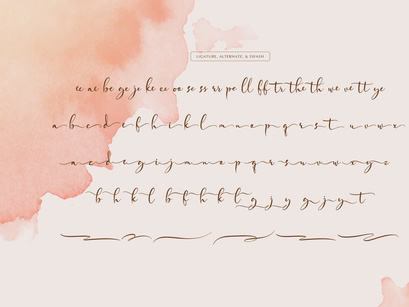 LIGATURE, ALTERNATE, & SWASH
ee ae be ge je ke ee oo se ss rr pe ll ff tr the th we ve tt ye
a b c d e f h i k l m n o p q r s t u v w x
a c d e g i j m n o p q r s u v w x y z
b h k l b f h k l g j y g j y t